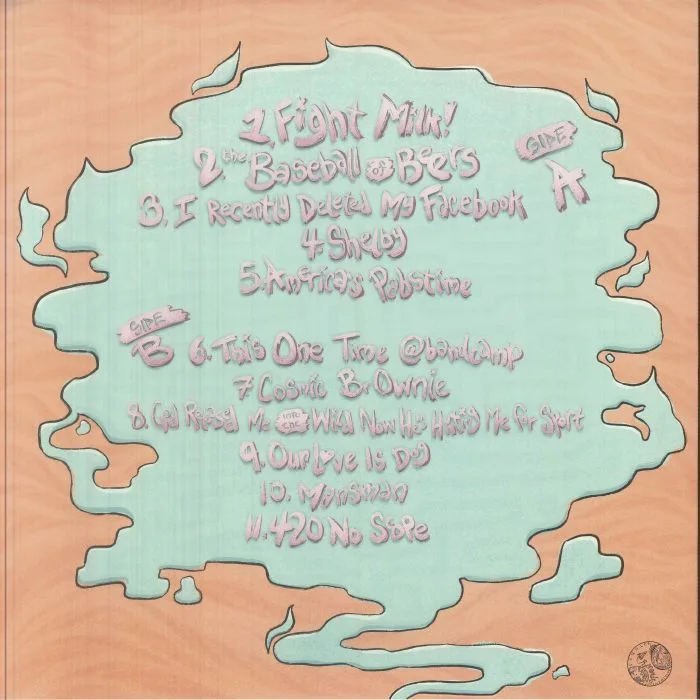 1. Fight Milk!
2. the Baseball & Beers
SIDE A
3. I Recently Deleted My Facebook
4. Shelby
5. America's Pabstime
SIDE B
6. This One Time @bandcamp
7. Cosmic BrOwnie
8. God Raised Me INTO the Wild Now He's Hunting Me For Sport
9. Our Love Is Dog
10. Marsman
11. 420 No Scope